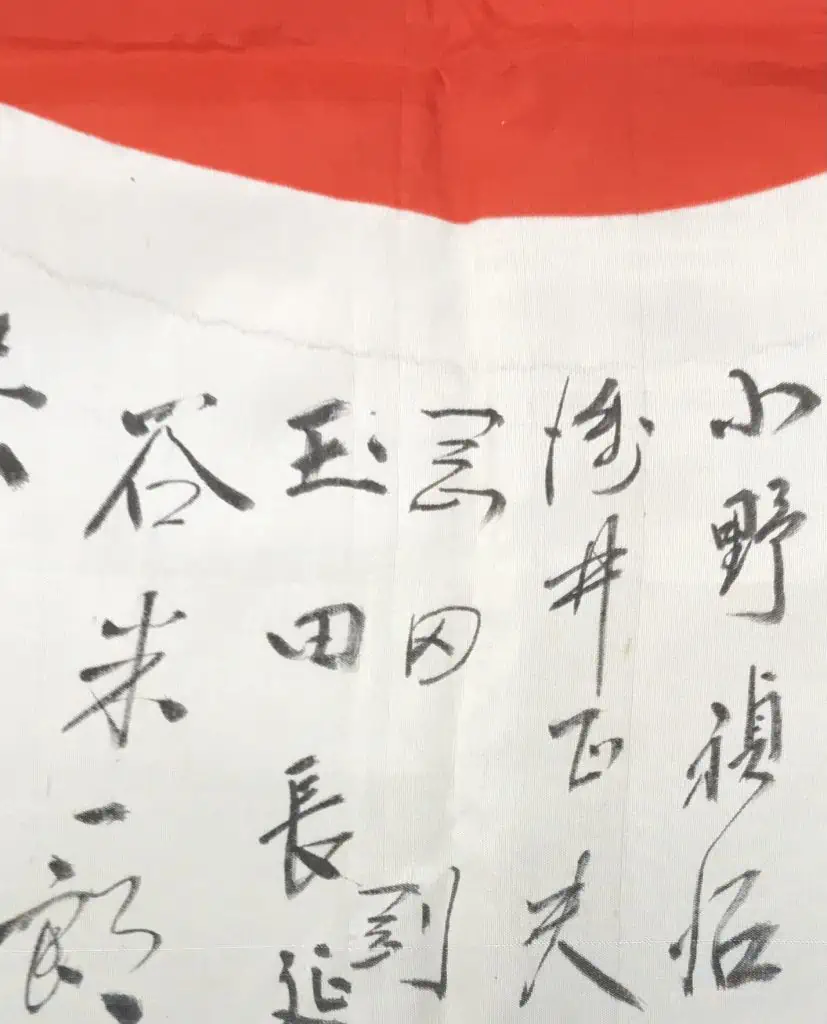 小野禎治
浅井正夫
富田 到
玉田長延
谷米一郎